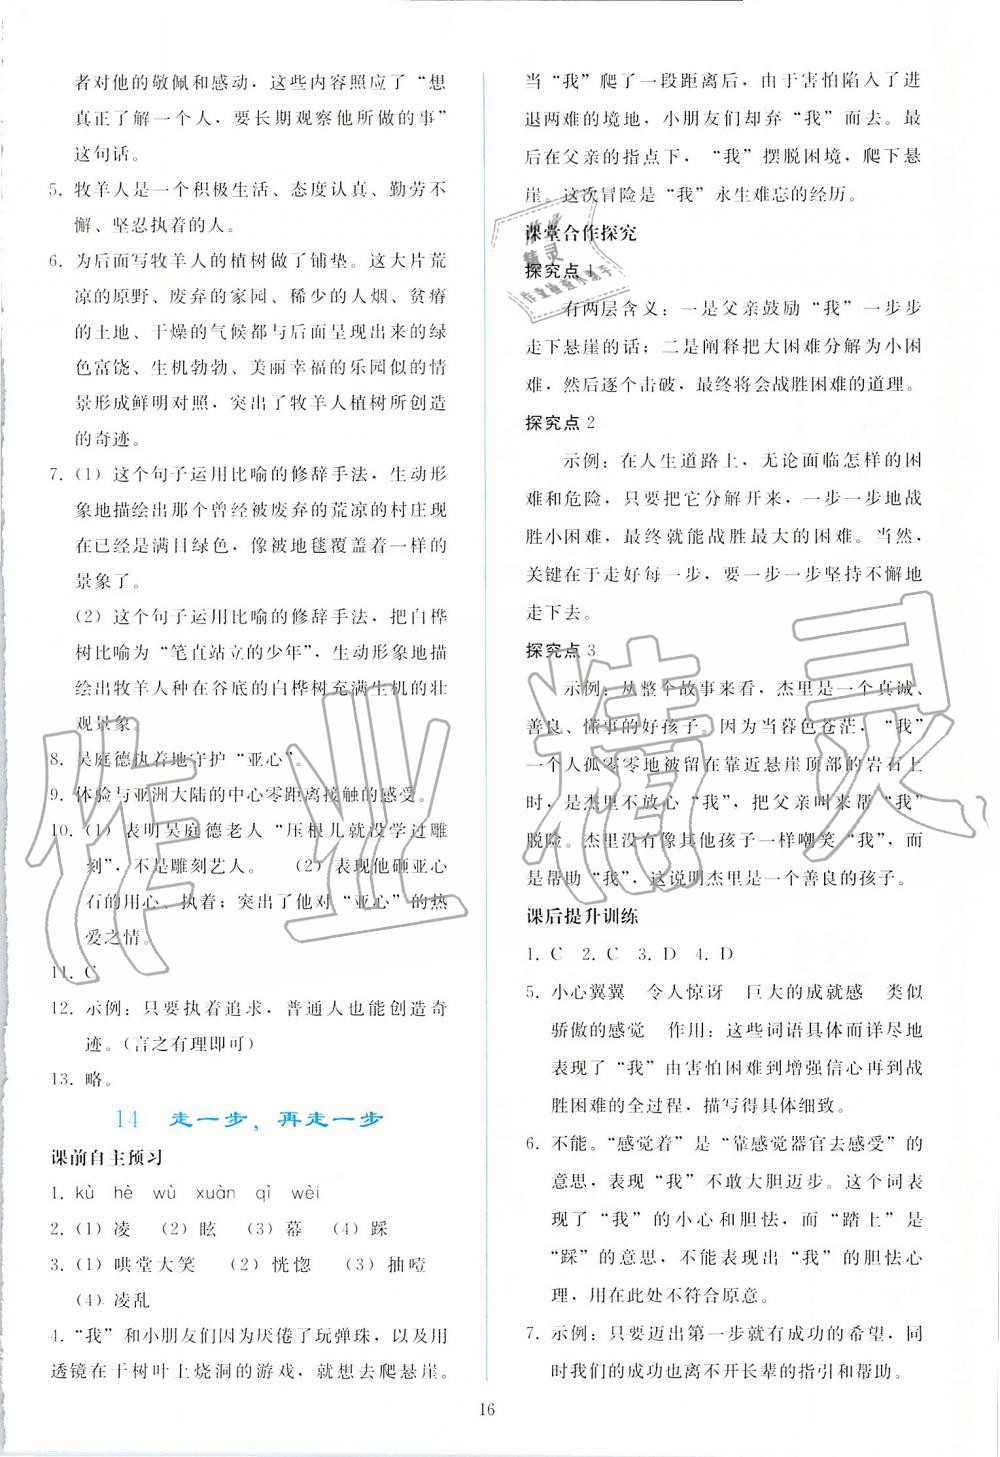 者对他的敬佩和感动，这些内容照应了“想
真正了解一个人，要长期观察他所做的事”
这句话。
5. 牧羊人是一个积极生活、态度认真、勤劳不
懈、坚忍执着的人。
6. 为后面写牧羊人的植树做了铺垫。这大片荒
凉的原野、废弃的家园、稀少的人烟、贫瘠
的土地、干燥的气候都与后面呈现出来的绿
色富饶、生机勃勃、美丽幸福的乐园似的情
景形成鲜明对照，突出了牧羊人植树所创造
的奇迹。
7. (1) 这个句子运用比喻的修辞手法，生动形
象地描绘出那个曾经被废弃的荒凉的村庄现
在已经是满目绿色，像被地毯覆盖着一样的
景象了。
(2) 这个句子运用比喻的修辞手法，把白桦
树比喻为“笔直站立的少年”，生动形象地描
绘出牧羊人种在谷底的白桦树充满生机的壮
观景象。
8. 吴庭德执着地守护“亚心”。
9. 体验与亚洲大陆的中心零距离接触的感受。
10. (1) 表明吴庭德老人“压根儿就没学过雕
刻”，不是雕刻艺人。 (2) 表现他砸亚心
石的用心、执着；突出了他对“亚心”的热
爱之情。
11. C
12. 示例：只要执着追求，普通人也能创造奇
迹。(言之有理即可)
13. 略。
14 走一步，再走一步
课前自主预习
1. kù hè wù xuàn qì wèi
2. (1) 凌 (2) 眩 (3) 幕 (4) 踩
3. (1) 哄堂大笑 (2) 恍惚 (3) 抽噎
(4) 凌乱
4. “我”和小朋友们因为厌倦了玩弹珠，以及用
透镜在干树叶上烧洞的游戏，就想去爬悬崖。
当“我”爬了一段距离后，由于害怕陷入了进
退两难的境地，小朋友们却弃“我”而去。最
后在父亲的指点下，“我”摆脱困境，爬下悬
崖。这次冒险是“我”永生难忘的经历。
课堂合作探究
探究点 1
有两层含义：一是父亲鼓励“我”一步步
走下悬崖的话；二是阐释把大困难分解为小困
难，然后逐个击破，最终将会战胜困难的道理。
探究点 2
示例：在人生道路上，无论面临怎样的困
难和危险，只要把它分解开来，一步一步地战
胜小困难，最终就能战胜最大的困难。当然，
关键在于走好每一步，要一步一步坚持不懈地
走下去。
探究点 3
示例：从整个故事来看，杰里是一个真诚、
善良、懂事的好孩子。因为当暮色苍茫，“我”
一个人孤零零地被留在靠近悬崖顶部的岩石上
时，是杰里不放心“我”，把父亲叫来帮“我”
脱险。杰里没有像其他孩子一样嘲笑“我”，而
是帮助“我”，这说明杰里是一个善良的孩子。
课后提升训练
1. C 2. C 3. D 4. D
5. 小心翼翼 令人惊讶 巨大的成就感 类似
骄傲的感觉 作用：这些词语具体而详尽地
表现了“我”由害怕困难到增强信心再到战
胜困难的全过程，描写得具体细致。
6. 不能。“感觉着”是“靠感觉器官去感受”的
意思，表现“我”不敢大胆迈步。这个词表
现了“我”的小心和胆怯，而“踏上”是
“踩”的意思，不能表现出“我”的胆怯心
理，用在此处不符合原意。
7. 示例：只要迈出第一步就有成功的希望，同
时我们的成功也离不开长辈的指引和帮助。
16
作业精灵